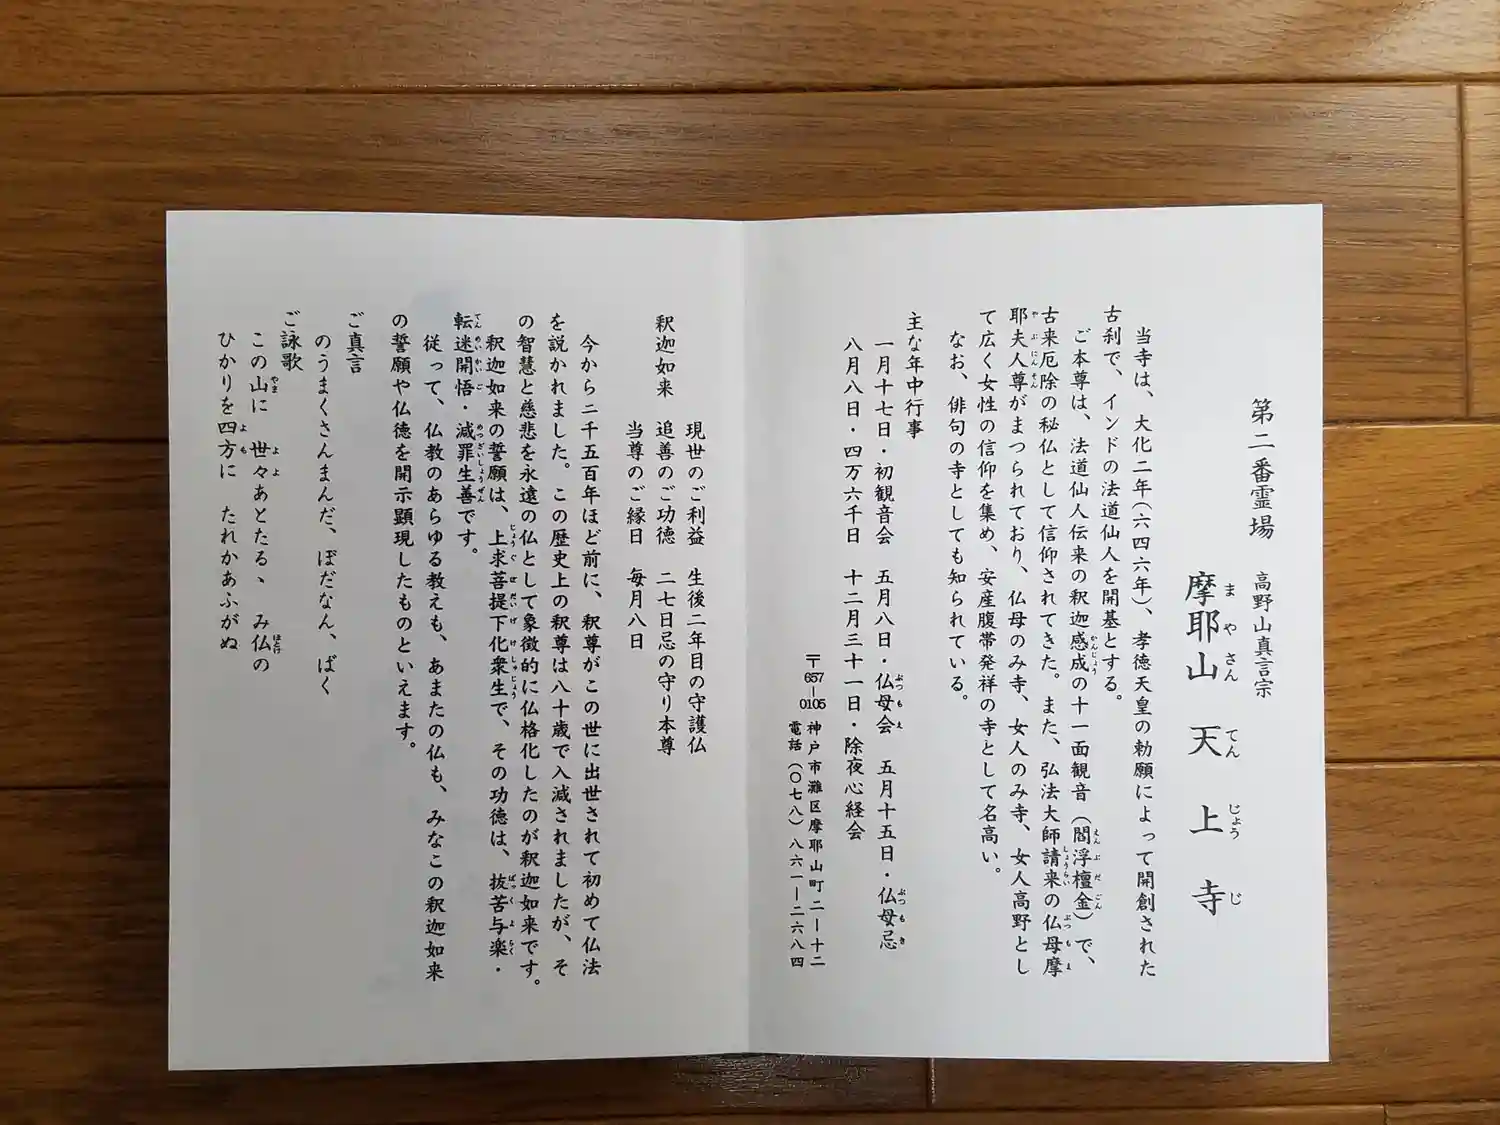 第二番霊場
高野山真言宗
摩耶山 天上寺
まやさん てんじょうじ
当寺は、大化二年(六四六年)、孝徳天皇の勅願によって開創された
古刹で、インドの法道仙人を開基とする。
ご本尊は、法道仙人伝来の釈迦感成の十一面観音(閻浮檀金)で、
かんじょう えんぶだごん
古来厄除の秘仏として信仰されてきた。また、弘法大師請来の仏母摩
しょうらい ぶつもま
耶夫人尊がまつられており、仏母のみ寺、女人のみ寺、女人高野とし
やぶにんそん
て広く女性の信仰を集め、安産腹帯発祥の寺として名高い。
なお、俳句の寺としても知られている。
主な年中行事
一月十七日・初観音会 五月八日・仏母会 五月十五日・仏母忌
ぶつもえ ぶつもき
八月八日・四万六千日 十二月三十一日・除夜心経会
〒657-0105 神戸市灘区摩耶山町二-十二
電話(〇七八)八六一-二六八四
現世のご利益 生後二年目の守護仏
釈迦如来 追善のご功徳 二七日忌の守り本尊
当尊のご縁日 毎月八日
今から二千五百年ほど前に、釈尊がこの世に出世されて初めて仏法
を説かれました。この歴史上の釈尊は八十歳で入滅されましたが、そ
の智慧と慈悲を永遠の仏として象徴的に仏格化したのが釈迦如来です。
釈迦如来の誓願は、上求菩提下化衆生で、その功徳は、抜苦与楽・
じょうぐぼだいげけしゅじょう ばっくよらく
転迷開悟・滅罪生善です。
てんめいかいご めつざいしょうぜん
従って、仏教のあらゆる教えも、あまたの仏も、みなこの釈迦如来
の誓願や仏徳を開示顕現したものといえます。
ご真言
のうまくさんまんだ、ぼだなん、ばく
ご詠歌
この山に 世々あとたる、み仏の
やま よよ ほとけ
ひかりを四方に たれかあふがぬ
よも